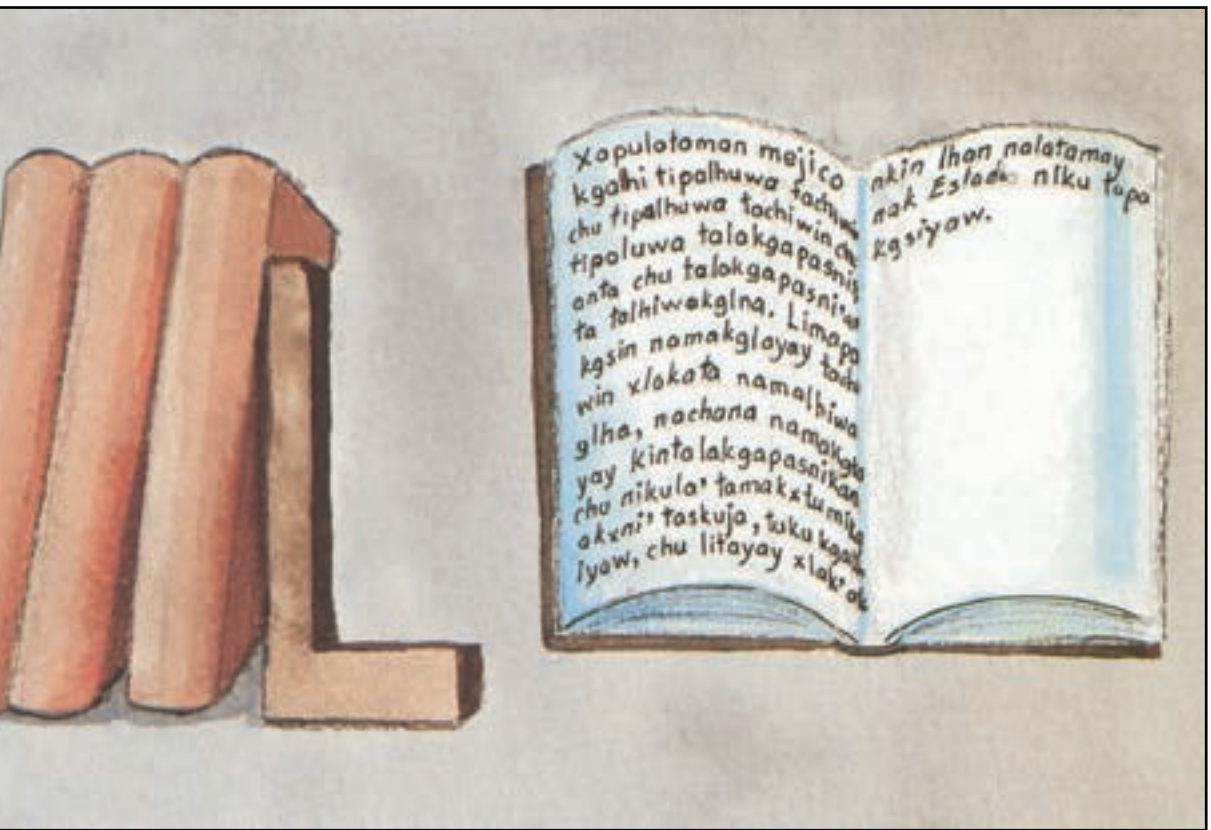 Xapulataman mejico
kgalhi tipalhuwa
chu tipalhuwa tachiwin
tipaluwa talakgapasni
anta chu talakgapasni'
ta talhiwakglna. Limapa
kgsin namakglayay
win xlakata namalhiwa
glha, nachana namakgla
yay kintalakgapasnikan
chu nikula' tamakxtumi
akxni' taskuja, tuku
iyaw, chu litayay xlak'
nkin lhan nalatamay
nak Estado niku tapa
kgsiyaw.